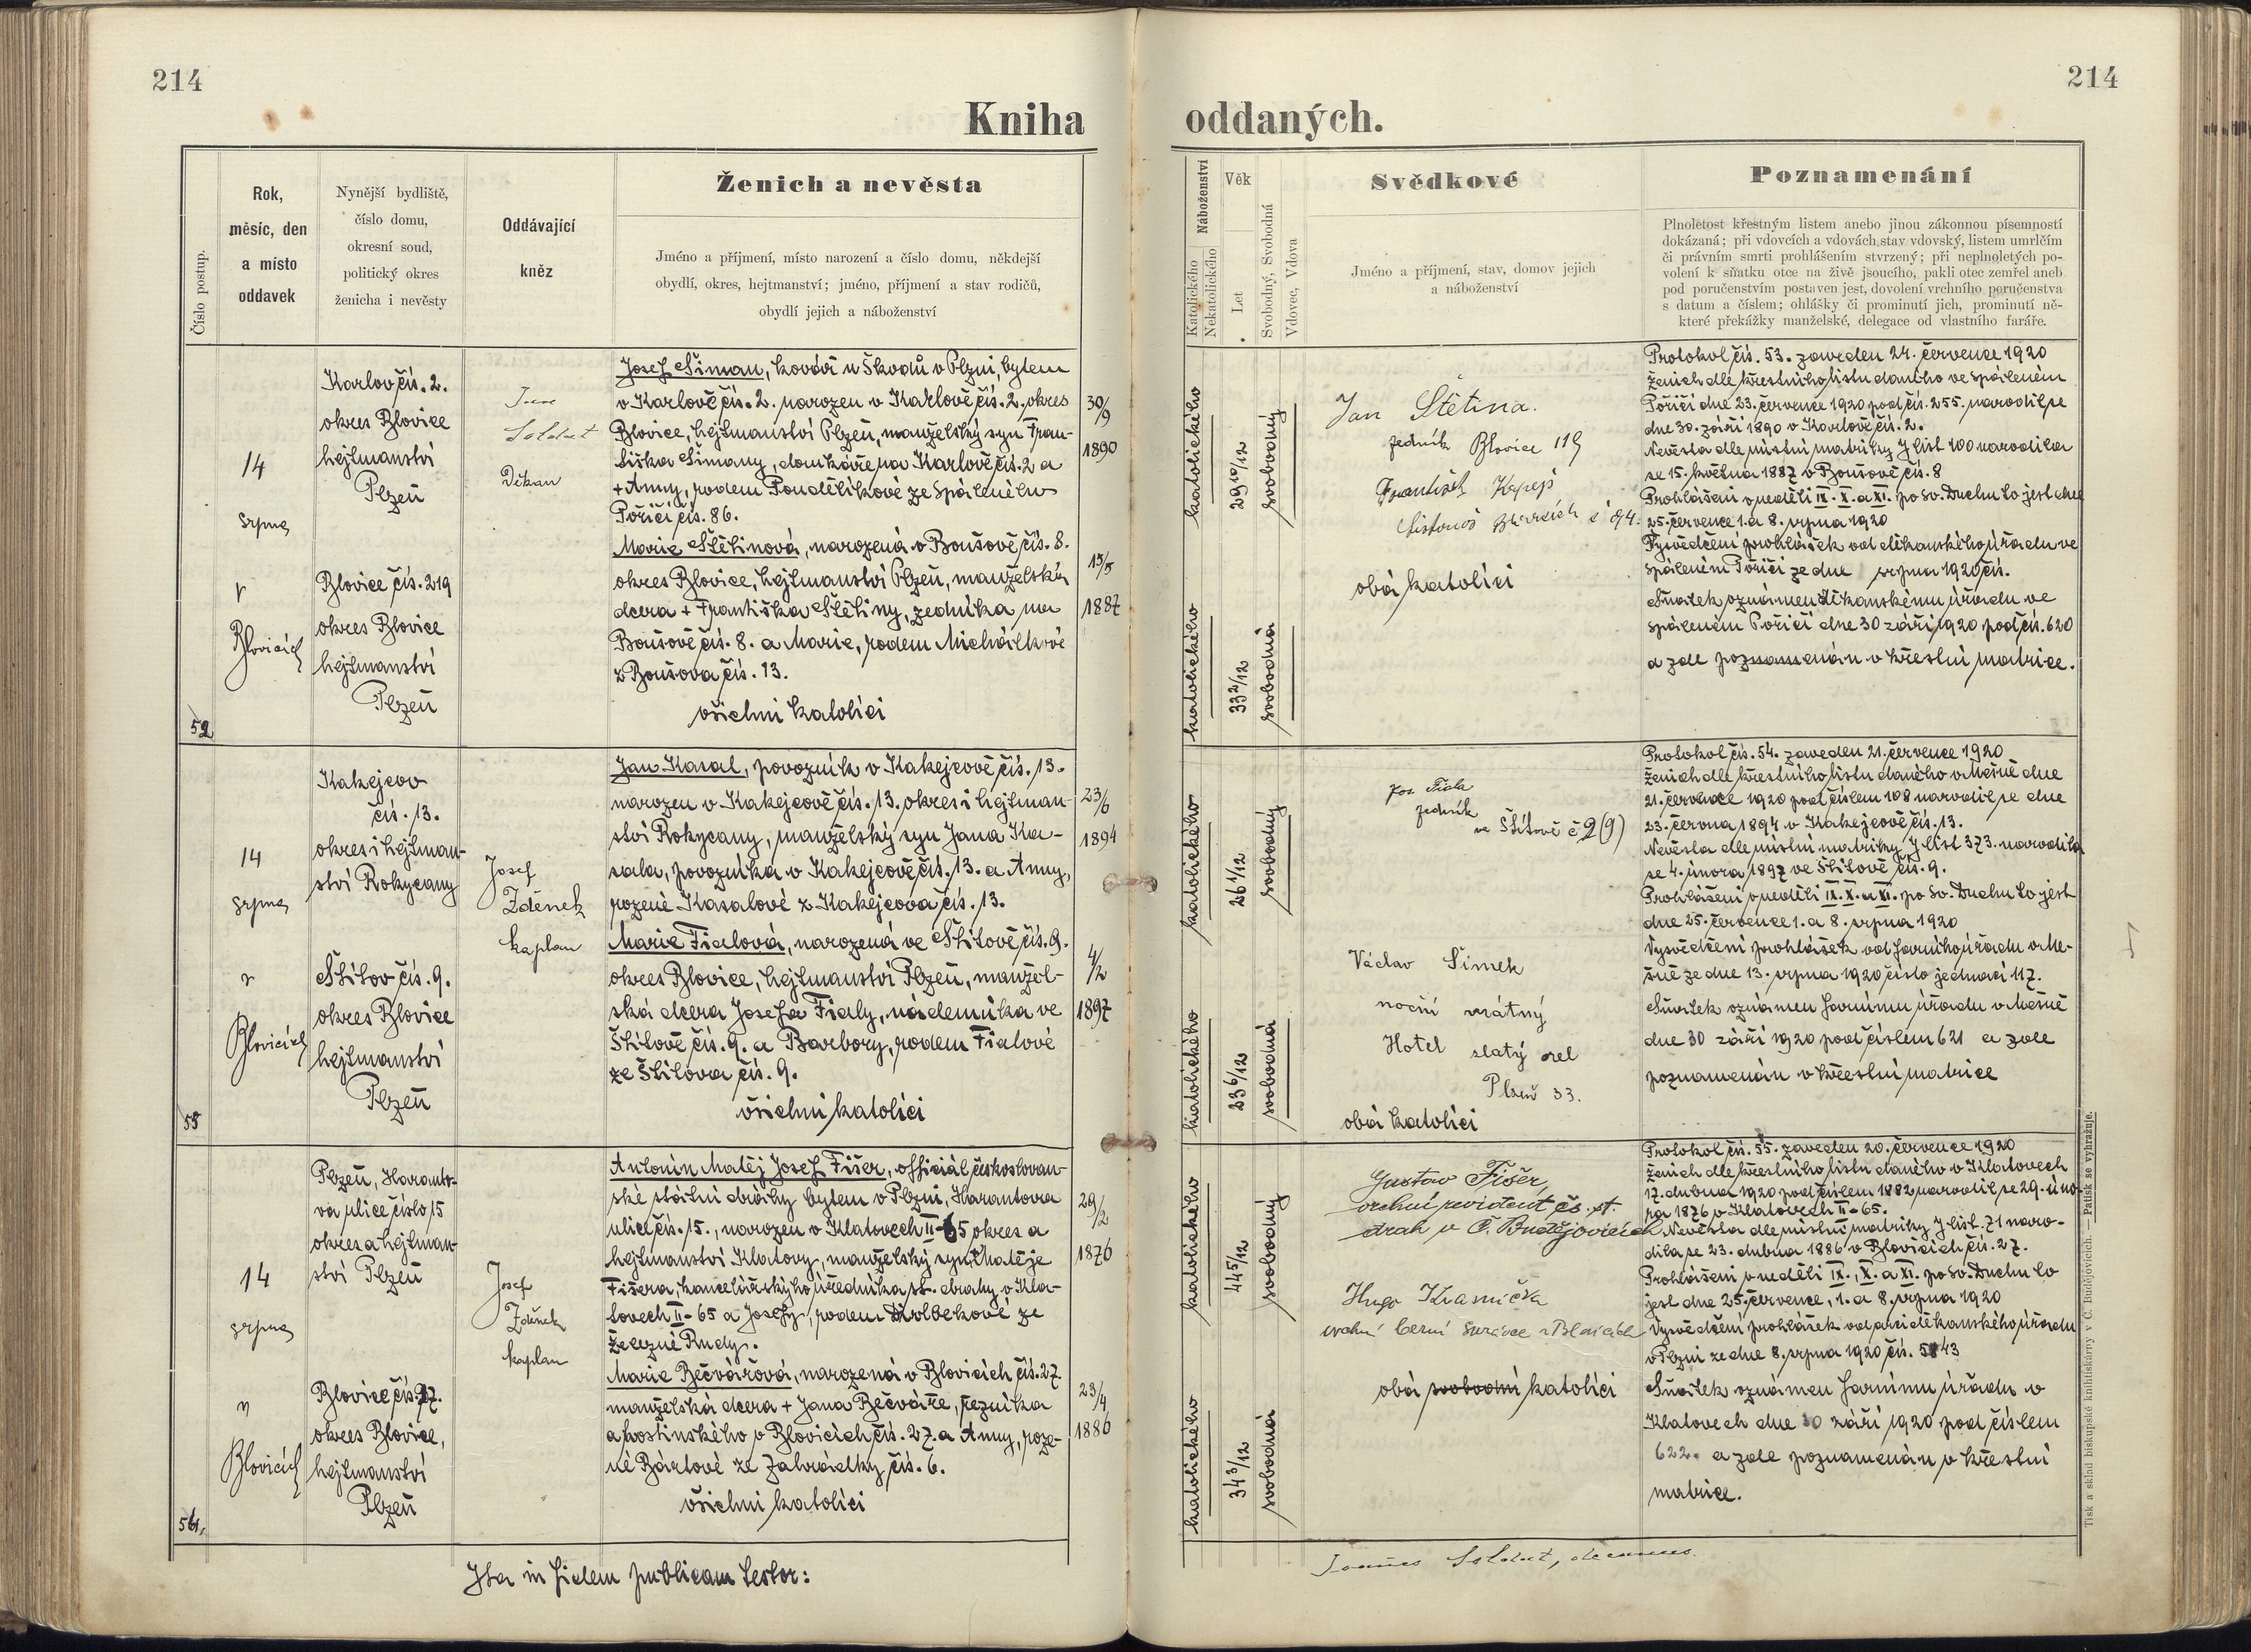 214
214
Kniha oddaných.
Číslo postup.
Rok,
měsíc, den
a místo
oddavek
Nynější bydliště,
číslo domu,
okresní soud,
politický okres
ženicha i nevěsty
Oddávající
kněz
Ženich a nevěsta
Jméno a příjmení, místo narození a číslo domu, někdejší
obydlí, okres, hejtmanství; jméno, příjmení a stav rodičů,
obydlí jejich a náboženství
Náboženství
Katolického
Nekatolického
Věk
Let
Svobodný, Svobodná
Vdovec, Vdova
Svědkové
Jméno a příjmení, stav, domov jejich
a náboženství
Poznamenání
Plnoletost křestným listem anebo jinou zákonnou písemností
dokázaná; při vdovcích a vdovách stav vdovský, listem umrlčím
či právním smrti prohlášením stvrzený; při neplnoletých po-
volení k sňatku otce na živě jsoucího, pakli otec zemřel aneb
pod poručenstvím postaven jest, dovolení vrchního poručenstva
s datum a číslem; ohlášky či prominutí jich, prominutí ně-
které překážky manželské, delegace od vlastního faráře.
52
14
srpna
v
Blovicích
Karlov čís. 2.
okres Blovice
hejtmanství
Plzeň
Blovice čís. 219
okres Blovice
hejtmanství
Plzeň
Jan
Soldát
Děkan
Josef Šiman, kovář u Škodů v Plzni, bytem
v Karlově čís. 2. narozen v Karlově čís. 2. okres
Blovice, hejtmanství Plzeň, manželský syn Fran-
tiška Šimany, domkáře na Karlově čís. 2 a
+ Anny, rodem Pondělíkové ze Spáleného
Poříčí čís. 86.
Marie Štětinová, narozená v Boušově čís. 8.
okres Blovice, hejtmanství Plzeň, manželská
dcera + Františka Štětiny, zedníka na
Boušově čís. 8. a Marie, rodem Michálkové
z Boušova čís. 13.
všichni katolíci
30/9
1890
15/5
1887
katolického
29 10/12
svobodný
katolického
33 2/12
svobodná
Jan Štětina.
zedník Blovice 119
František
listonoš
obá katolíci
Protokol čís. 53. zaveden 24. července 1920
Ženich dle křestního listu daného ve Spáleném
Poříčí dne 23. července 1920 pod čís. 255. narodil se
dne 30. září 1890 v Karlově čís. 2.
Nevěsta dle místní matriky J list 100 narodila
se 15. května 1887 v Boušově čís. 8
Prohlášeni v neděli IX. X. a XI. po sv. Duchu to jest dne
25. července 1. a 8. srpna 1920
Vysvědčení prohlášek od děkanského úřadu ve
Spáleném Poříčí ze dne srpna 1920 čís.
Sňatek oznámen děkanskému úřadu ve
Spáleném Poříčí dne 30 září 1920 pod čís. 620
a zde poznamenán v křestní matrice.
55
14
srpna
v
Blovicích
Kakejcov
čís. 13.
okres i hejtman-
ství Rokycany
Štítov čís. 9.
okres Blovice
hejtmanství
Plzeň
Josef
Zděnek
kaplan
Jan Kasal, povozník v Kakejcově čís. 13.
narozen v Kakejcově čís. 13. okres i hejtman-
ství Rokycany, manželský syn Jana Ka-
sala, povozníka v Kakejcově čís. 13. a Anny,
rozené Kasalové z Kakejcova čís. 13.
Marie Fialová, narozená ve Štítově čís. 9.
okres Blovice, hejtmanství Plzeň, manžel-
ská dcera Josefa Fialy, nádenníka ve
Štítově čís. 9. a Barbory, rodem Fialové
ze Štítova čís. 9.
všichni katolíci
23/6
1894
4/2
1897
katolického
26 1/12
svobodný
katolického
23 6/12
svobodná
Jos. Fiala
zedník
ve Štítově č 9 (9)
Václav Šimek
noční vrátný
Hotel zlatý orel
Plzeň 33.
obá katolíci
Protokol čís. 54. zaveden 21. července 1920
Ženich dle křestního listu daného v Mešně dne
21. července 1920 pod číslem 108 narodil se dne
23. června 1894 v Kakejcově čís. 13.
Nevěsta dle místní matriky J list 373. narodila
se 4. února 1897 ve Štítově čís. 9.
Prohlášeni v neděli IX. X. a XI. po sv. Duchu to jest
dne 25. července 1. a 8. srpna 1920
Vysvědčení prohlášek od farního úřadu v Me-
šně ze dne 13. srpna 1920 číslo jednací 117.
Sňatek oznámen farnímu úřadu v Mešně
dne 30 září 1920 pod číslem 621 a zde
poznamenán v křestní matrice
14
srpna
v
Blovicích
Plzeň, Haranto-
va ulice číslo 15
okres a hejtman-
ství Plzeň
Blovice čís. 27.
okres Blovice,
hejtmanství
Plzeň
Josef
Zděnek
kaplan
Antonín Matěj Josef Fišer, officiál českosloven-
ské státní dráhy bytem v Plzni, Harantova
ulice čís. 15., narozen v Klatovech II-65 okres a
hejtmanství Klatovy, manželský syn Matěje
Fišera, kancelářského úředníka st. dráhy v Kla-
tovech II-65 a Josefy, rodem ze
Železné Rudy.
Marie Bečvářová, narozená v Blovicích čís. 27
manželská dcera + Jana Bečváře, řezníka
a hostinského v Blovicích čís. 27. a Anny, roze-
né Bártové ze Zahrádky čís. 6.
všichni katolíci
29/2
1876
23/4
1886
katolického
44 5/12
svobodný
katolického
34 3/12
svobodná
Gustav Fišer,
vrchní revident čs. st.
drah v Č. Budějovicích
Hugo Krasnička
vrchní berní správce v Blovicích
obá svobodní katolíci
Protokol čís. 55. zaveden 20. července 1920
Ženich dle křestního listu daného v Klatovech
17. dubna 1920 pod číslem 1882 narodil se 29. úno-
ra 1876 v Klatovech II-65.
Nevěsta dle místní matriky J list. 71 naro-
dila se 23. dubna 1886 v Blovicích čís. 27.
Prohlášeni v neděli IX., X. a XI. po sv. Duchu to
jest dne 25. července, 1. a 8. srpna 1920
Vysvědčení prohlášek od arciděkanského úřadu
v Plzni ze dne 8. srpna 1920 čís.
Sňatek oznámen farnímu úřadu v
Klatovech dne 30 září 1920 pod číslem
622. a zde poznamenán v křestní
matrice.
Ita in fidem publicam testor:
Joannes Soldát, decanus.
Tisk a sklad biskupské knihtiskárny v Č. Budějovicích. — Patisk se vyhražuje.